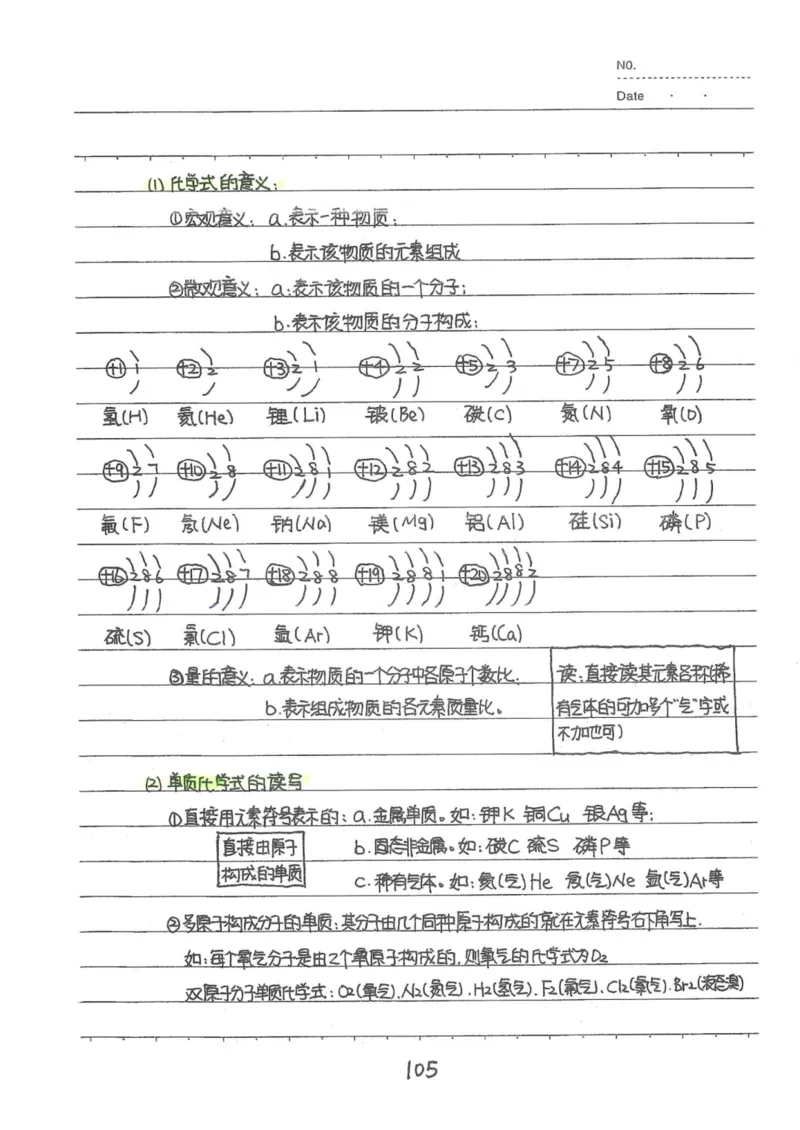 NO.
Date · ·
(1) 化学式的意义:
①宏观意义: a.表示一种物质;
b.表示该物质的元素组成
②微观意义: a.表示该物质的一个分子;
b.表示该物质的分子构成;
+1 1 +2 2 +3 2 1 +4 2 2 +5 2 3 +7 2 5 +8 2 6
氢(H) 氦(He) 锂(Li) 铍(Be) 碳(C) 氮(N) 氧(O)
+9 2 7 +10 2 8 +11 2 8 1 +12 2 8 2 +13 2 8 3 +14 2 8 4 +15 2 8 5
氟(F) 氖(Ne) 钠(Na) 镁(Mg) 铝(Al) 硅(Si) 磷(P)
+16 2 8 6 +17 2 8 7 +18 2 8 8 +19 2 8 8 1 +20 2 8 8 2
硫(S) 氯(Cl) 氩(Ar) 钾(K) 钙(Ca)
③量的意义: a.表示物质的一个分子中各原子个数比;
b.表示组成物质的各元素质量比。
读:直接读其元素名称(稀
有气体的可加多个“气”字或
不加也可)
(2) 单质化学式的读写
①直接用元素符号表示的: a.金属单质。如:钾K 铜Cu 银Ag等;
直接由原子
构成的单质
b.固态非金属。如:碳C 硫S 磷P等
c.稀有气体。如:氦(气)He 氖(气)Ne 氩(气)Ar等
②多原子构成分子的单质:其分子由几个同种原子构成的就在元素符号右下角写上.
如:每个氧气分子是由2个氧原子构成的,则氧气的化学式为O₂
双原子分子单质化学式:O₂(氧气).N₂(氮气).H₂(氢气).F₂(氟气).Cl₂(氯气).Br₂(液态溴)
105